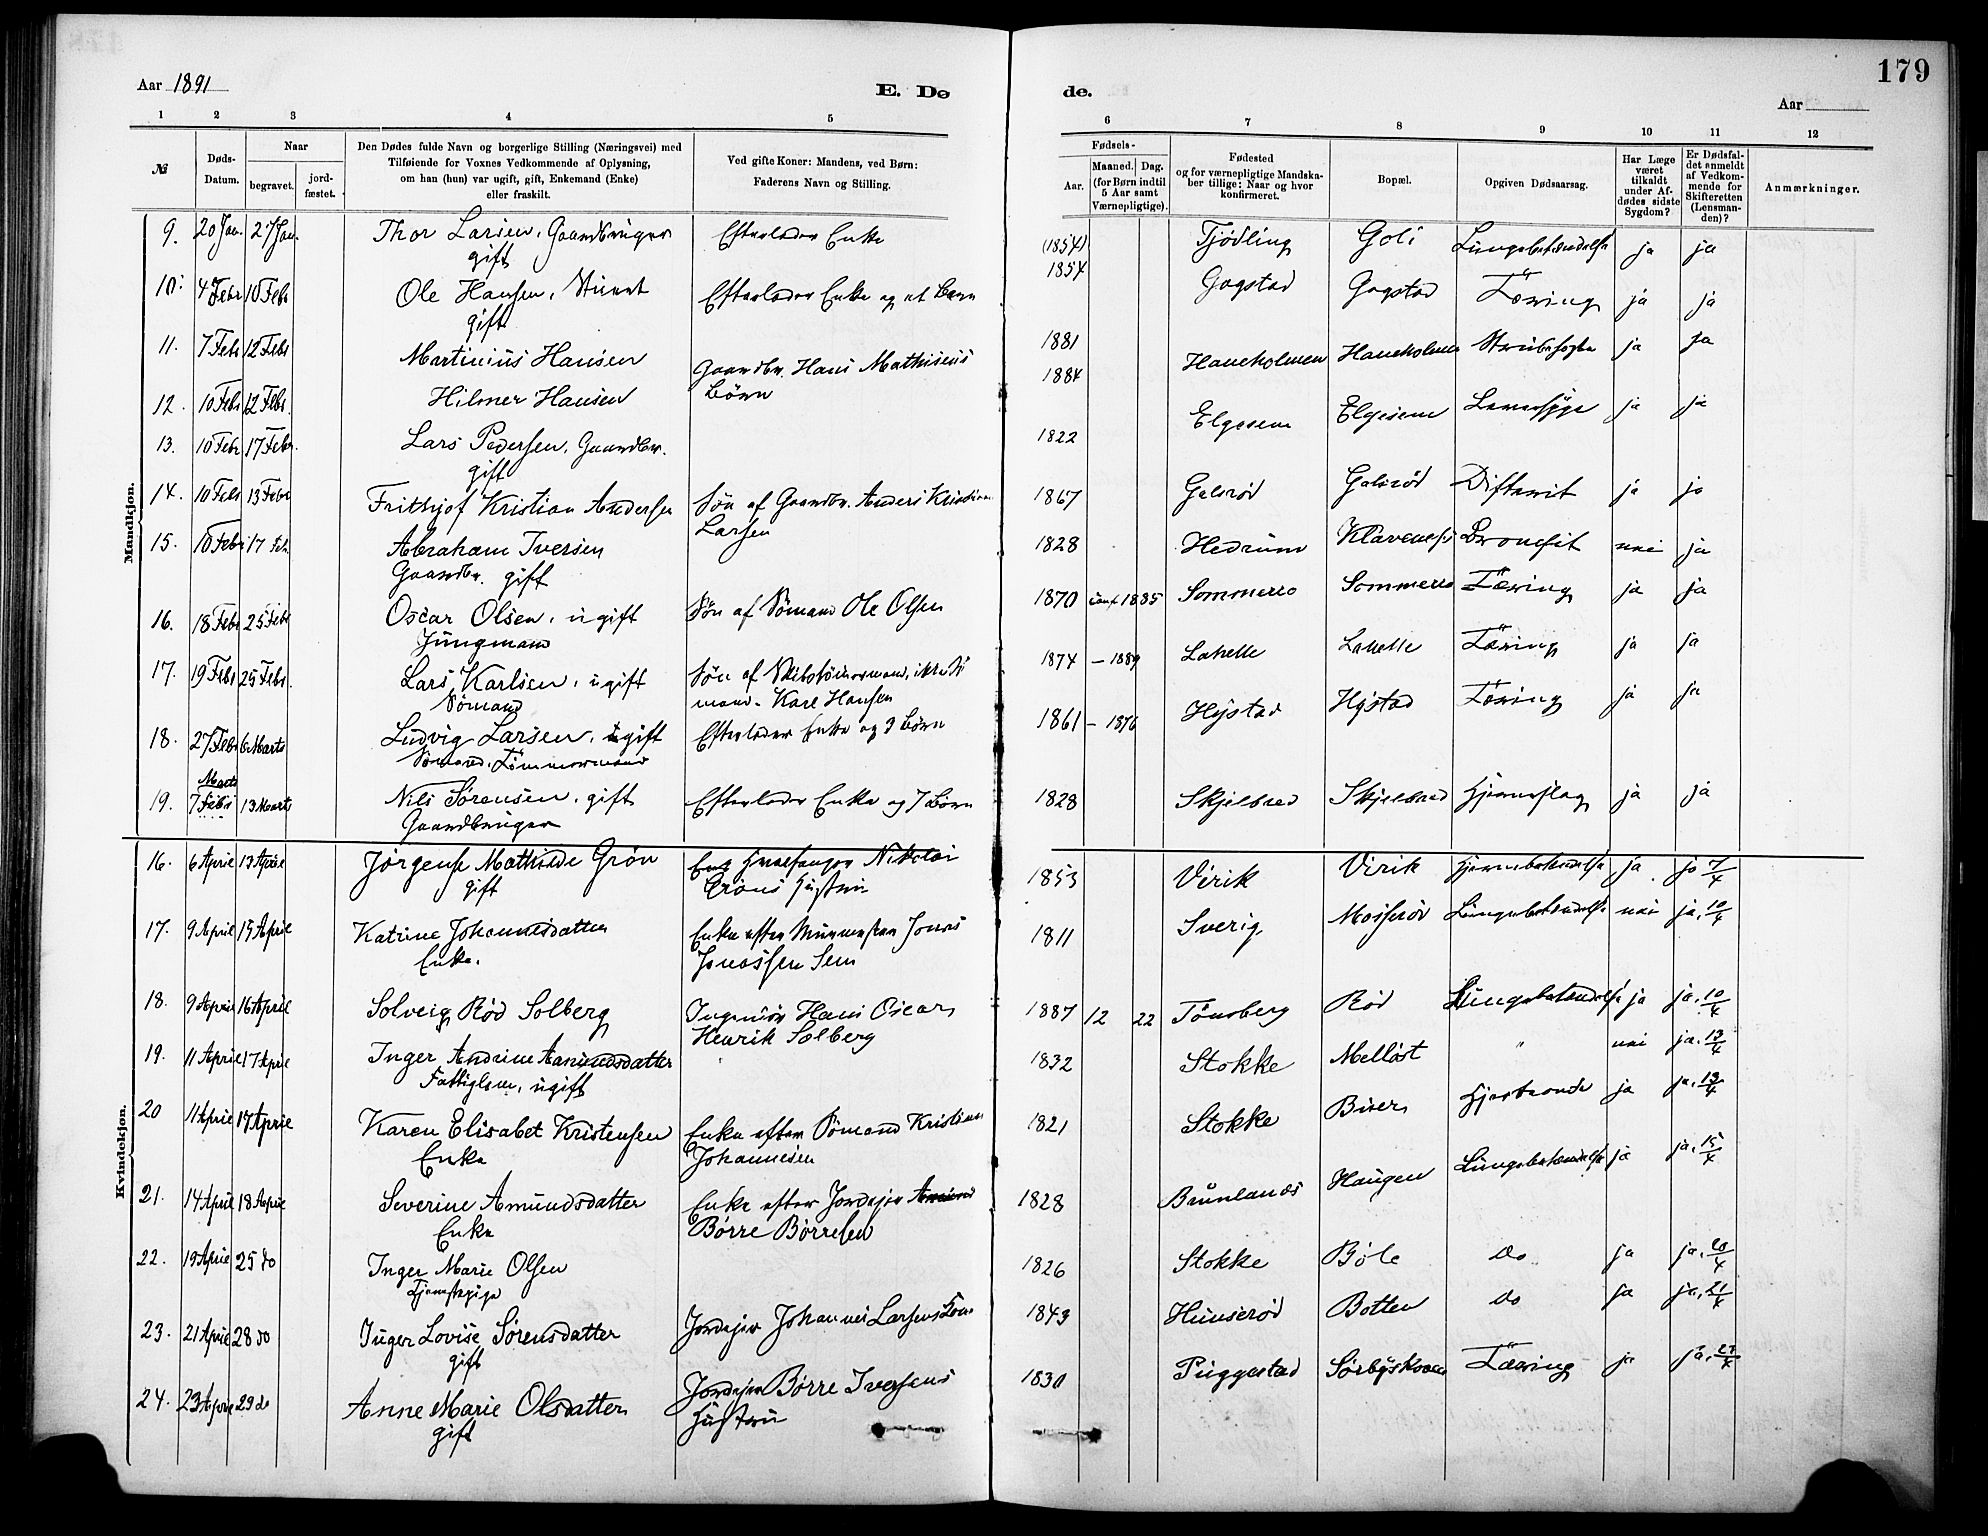 179
Aar 1891
E. Dø
de.
Aar
1 2 3 4 5
6 7 8 9 10 11 12
№
Døds-Datum.
Naar
begravet.
jordfæstet.
Den Dødes fulde Navn og borgerlige Stilling (Næringsvei) med
Tilføiende for Voxnes Vedkommende af Oplysning,
om han (hun) var ugift, gift, Enkemand (Enke)
eller fraskilt.
Ved gifte Koner: Mandens, ved Børn:
Faderens Navn og Stilling.
Fødsels-
Aar.
Maaned. Dag.
(for Børn indtil
5 Aar samt
Værnepligtige).
Fødested
og for værnepligtige Mandska-
ber tillige: Naar og hvor
konfirmeret.
Bopæl.
Opgiven Dødsaarsag.
Har Læge
været
tilkaldt
under Af-
dødes sidste
Sygdom?
Er Dødsfal-
det anmeldt
af Vedkom-
mende for
Skifteretten
(Lensman-
den)?
Anmærkninger.
Mandkjøn.
9. 20 Jan. 27 Jan. Thor Larsen, Gaardbruger Efterlader Enke (1854) Tjødling Goli Lungebetændelse ja ja
gift
10. 4 Febr 10 Febr Ole Hansen, gift Efterlader Enke og et Barn 1854 Gogstad Gogstad Tæring ja ja
11. 7 Febr 12 Febr Martinius Hansen Gaardbr. Hans Mathisens 1881 Haneholmen Haneholmen Strubehoste ja ja
12. 10 Febr 12 Febr. Hilmer Hansen Børn 1884
13. 10 Febr 17 Febr. Lars Pedersen, Gaardbr. 1822 Elgesem Elgesem Leversyge ja ja
gift
14. 10 Febr 13 Febr Frithjof Kristian Andersen Søn af Gaardbr. Anders Kristian 1867 Galsrød Galsrød Difterit ja ja
Larsen
15. 10 Febr 17 Feb. Abraham Iversen 1828 Hedrum Klavenes Bronchit nei ja
Gaardbr. gift
16. 18 Febr 25 Febr Oscar Olsen, ugift Søn af Sømand Ole Olsen 1870 conf 1885 Sommerro Sommerro Tæring ja ja
Jungmand
17. 19 Febr 25 Febr. Lars Karlsen, ugift Søn af Skibstømmermand, 1874 – 1889 Lahelle Lahelle Tæring ja ja
Sømand Karl Hansen
18. 27 Febr 6 Marts Ludvig Larsen, gift Efterlader Enke og 3 Børn 1861 – 1876 Hystad Hystad Tæring ja ja
Sømand, Tømmermand
Marts
19. 7 Febr 13 Marts Nils Sørensen, gift Efterlader Enke og 7 Børn 1828 Skjelbred Skjelbred Hjerneslag ja ja
Gaardbruger
Kvindekjøn.
16. 6 April 13 April Jørgense Mathilde Grøn Hvalfanger Nikolai 1853 Virik Virik Hjernebetændelse ja ja 7/4
gift Grøns Hustru
17. 9 April 15 April Katrine Johannesdatter Enke efter Murmester Jonas 1811 Sverig Mosserød Lungebetændelse nei ja, 10/4
Enke. Jonassen Sem
18. 9 April 16 April Solveig Rød Solberg Ingeniør Hans Oscar 1887 12 22 Tönsberg Rød Lungebetændelse ja ja, 10/4
Henrik Solberg
19. 11 April 17 April Inger Andrine Aamundsdatter 1832 Stokke Melløst " nei ja, 13/4
Fattiglem, ugift
20 11 April 17 April Karen Elisabet Kristensen Enke efter Sømand Kristian 1821 Stokke Buer Hjerteonde ja ja, 13/4
Enke Johannesen
21. 14 April 18 April Severine Amundsdatter Enke efter Jordejer 1828 Brunlanæs Haugen Lungebetændelse ja ja, 15/4
Enke Børre Børresen
22. 19 April 25 do Inger Marie Olsen 1826 Stokke Bøle do ja ja, 20/4
Tjenestepige
23. 21 April 28 do Inger Lovise Sørensdatter Jordejer Johannes Larsens Kone 1843 Hunserød Botten do ja ja, 21/4
gift
24. 23 April 29 do Anne Marie Olsdatter Jordejer Børre Iversens 1830 Puggestad Sørbyskoven Tæring ja ja, 27/4
gift Hustru